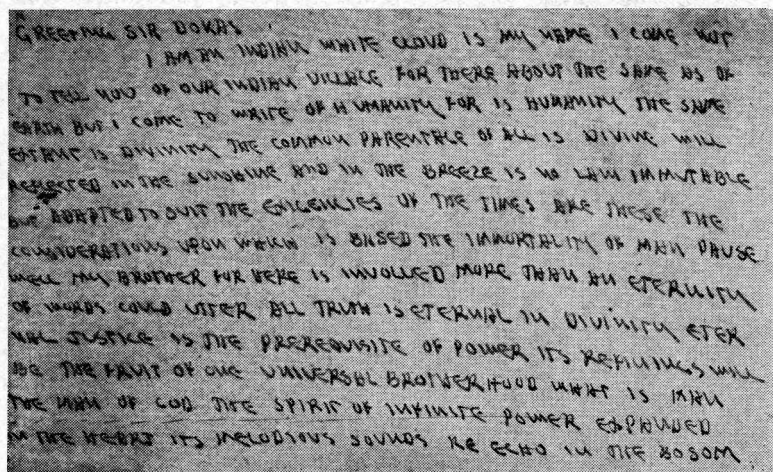 GREETING SIR DOKAS
I AM AN INDIAN WHITE CLOUD IS MY NAME I COME NOT
TO TELL YOU OF OUR INDIAN VILLAGE FOR THERE ABOUT THE SAME AS OF
EARTH BUT I COME TO WRITE OF HUMANITY FOR IS HUMANITY THE SAME
EXTANT IS DIVINITY THE COMMON PARENTAGE OF ALL IS DIVINE WILL
REFLECTED IN THE SUNSHINE AND IN THE BREEZE IS NO LAW IMMUTABLE
BUT ADAPTED TO SUIT THE EXIGENCIES OF THE TIMES ARE THESE THE
CONSIDERATIONS UPON WHICH IS BASED THE IMMORTALITY OF MAN PAUSE
WELL MY BROTHER FOR HERE IS INVOLLED MORE THAN AN ETERNITY
OF WORDS COULD UTTER ALL TRUTH IS ETERNAL IN DIVINITY ETER
NAL JUSTICE IS THE PREREQUISITE OF POWER ITS REFININGS WILL
BE THE FRUIT OF ONE UNIVERSAL BROTHERHOOD WHAT IS MAN
THE MAN OF GOD THE SPIRIT OF INFINITE POWER EXPANDED
IN THE HEART ITS MELODIOUS SOUNDS RE ECHO IN THE BOSOM